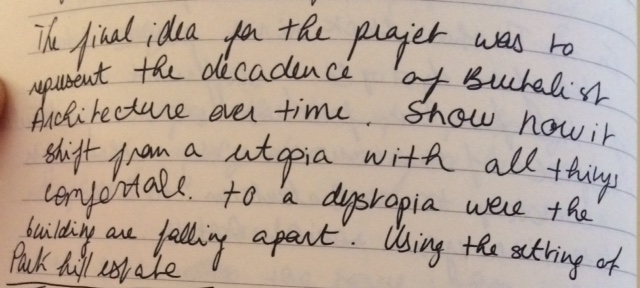 The final idea for the projet was to
represent the decadence of Brutalist
Architecture over time. Show how it
shift from a utopia with all things
comfortable. to a dystopia were the
building are falling apart. Using the setting of
Park hill estate